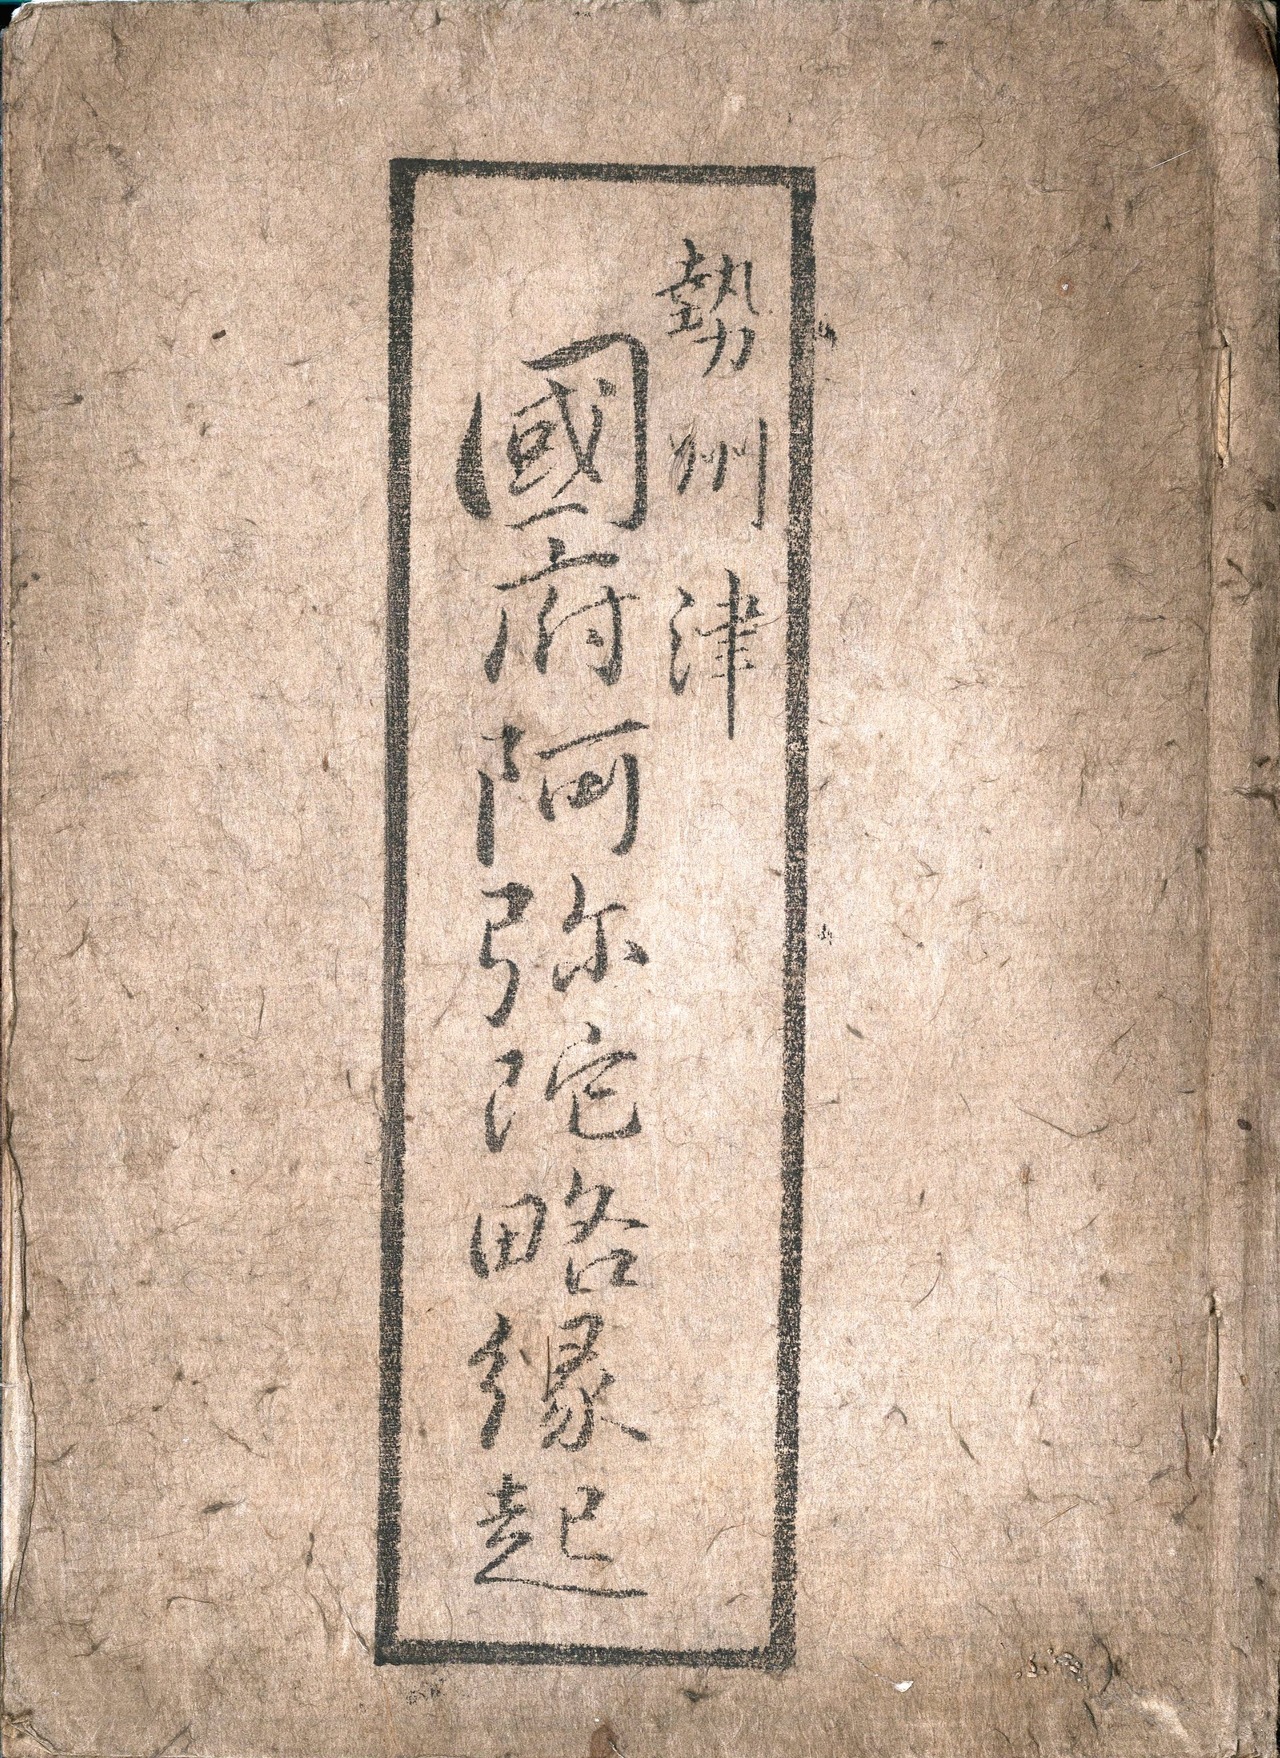 勢州津
國府阿弥陀略縁起